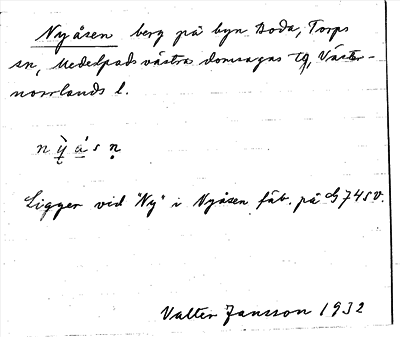 Nyåsen berg på byn Boda, Torps
sn, Medelpads västra domsagas tg, Väster-
norrlands l.
nỳ́ås ṇ
Ligger vid "Ny" i Nyåsen fäb. på G 74 SV.
Valter Jansson 1932